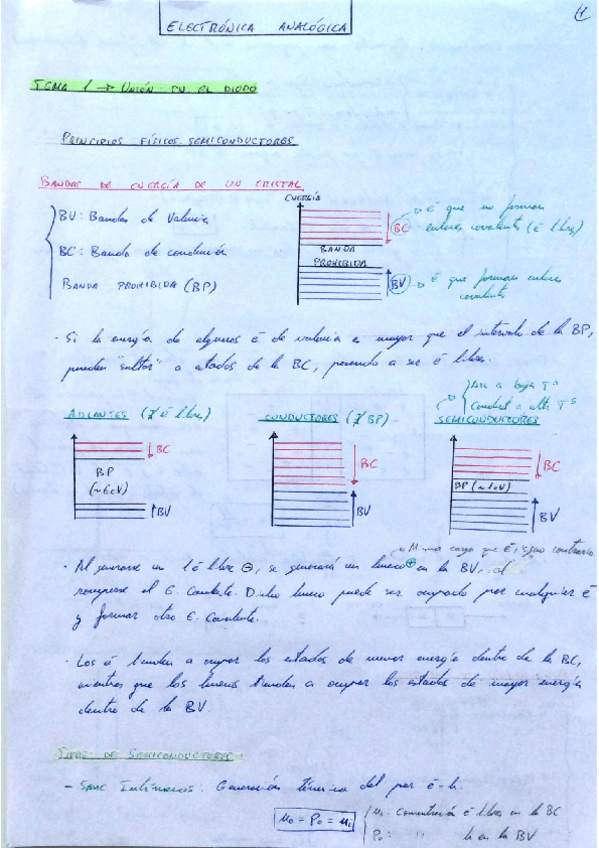 ELECTRÓNICA ANALÓGICA
1
TEMA 1 → UNIÓN PN EL DIODO
PRINCIPIOS FÍSICOS SEMICONDUCTORES
BANDAS DE ENERGÍA DE UN CRISTAL
BV: Bandas de Valencia
BC: Banda de conducción
BANDA PROHIBIDA (BP)
ENERGÍA
BC → é que no forman
enlaces covalente (é libres)
BANDA
PROHIBIDA
BV → é que forman enlaces
covalente
· Si la energía de algunos é de valencia es mayor que el intervalo de la BP,
pueden "saltar" a estados de la BC, pasando a ser é libres.
Aisl a bajas Tªs
Conduct a altas Tªs
AISLANTES (∄ é libres)
CONDUCTORES (∄ BP)
SEMICONDUCTORES
BC
BP
(~6eV)
BV
BC
BV
BC
BP (~1eV)
BV
→ Misma carga que é, signo contrario
· Al generarse un 1 é libre ⊖, se generará un hueco ⊕ en la BV, al
romperse el E. Covalente. Dicho hueco puede ser ocupado por cualquier é
y formar otro E. Covalente.
· Los é tienden a ocupar los estados de menor energía dentro de la BC,
mientras que los huecos tienden a ocupar los estados de mayor energía
dentro de la BV.
TIPOS DE SEMICONDUCTORES
- Smc Intrínsecos: Generación térmica del par é-h.
n₀ = P₀ = nᵢ
n₀: Concentración é libres en la BC
P₀: " h en la BV